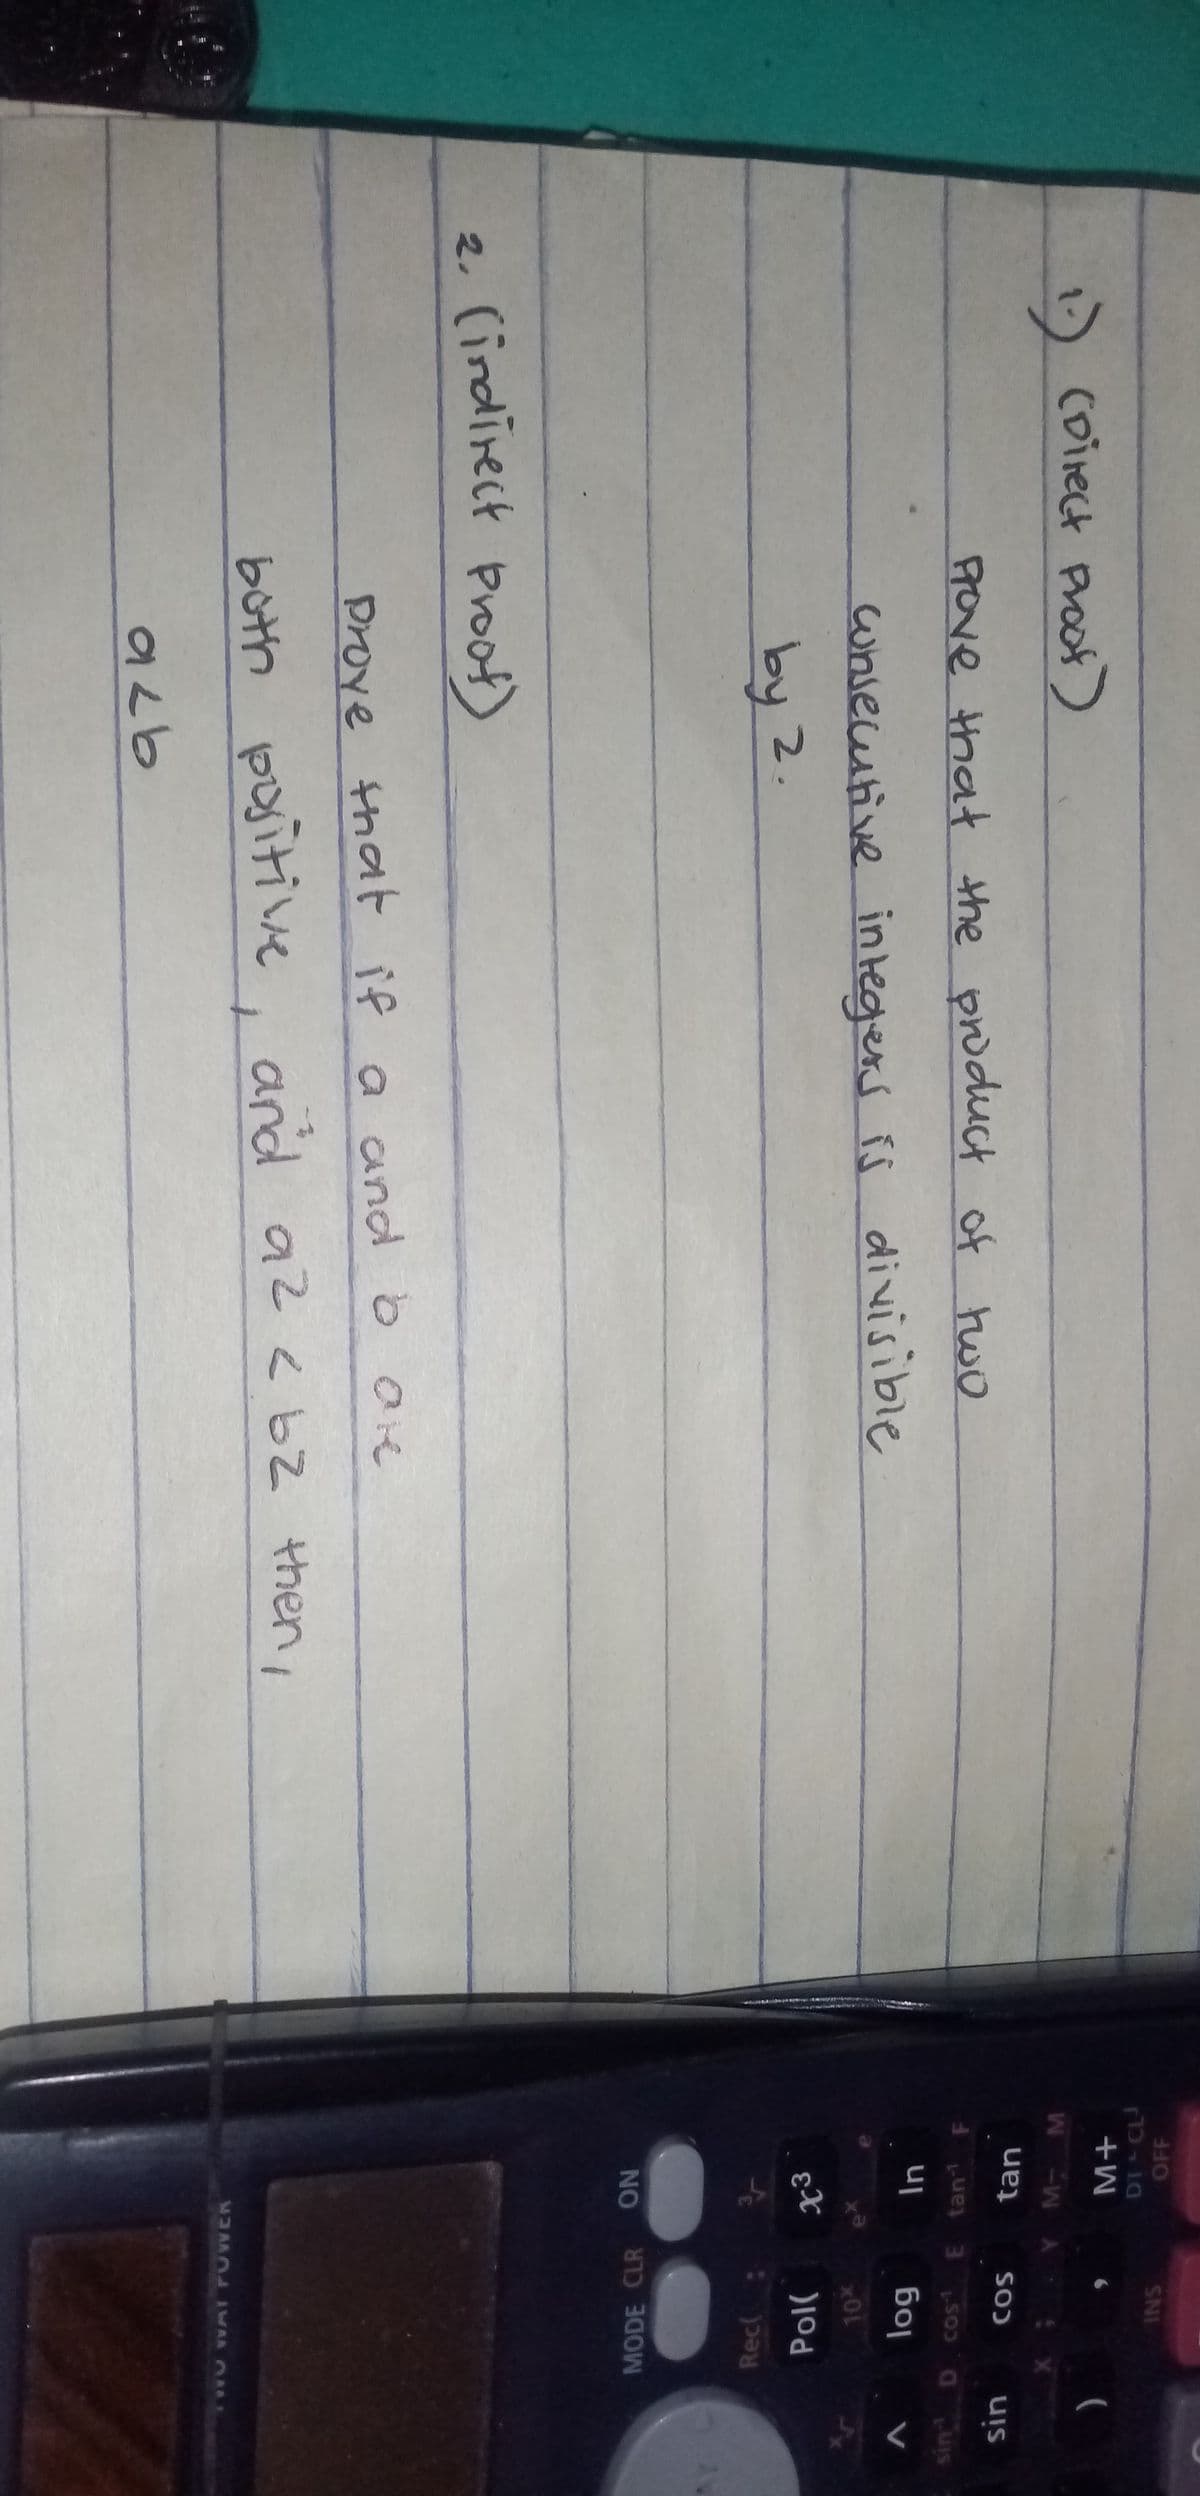 1.) (Direct Proof)
Prove that the product of two
consecutive integers is divisible
by 2.
2. (indirect proof)
prove that if a and b are
both positive, and a2 < b2 then,
a<b
OFF INS
DT CL
M+ , )
M M- Y ; X
tan cos sin
F tan-1 E cos-1 D sin-1
ln log ^
e ex 10x x√
x3 Pol(
3√ : Rec(
ON
MODE CLR
TWO WAY POWER